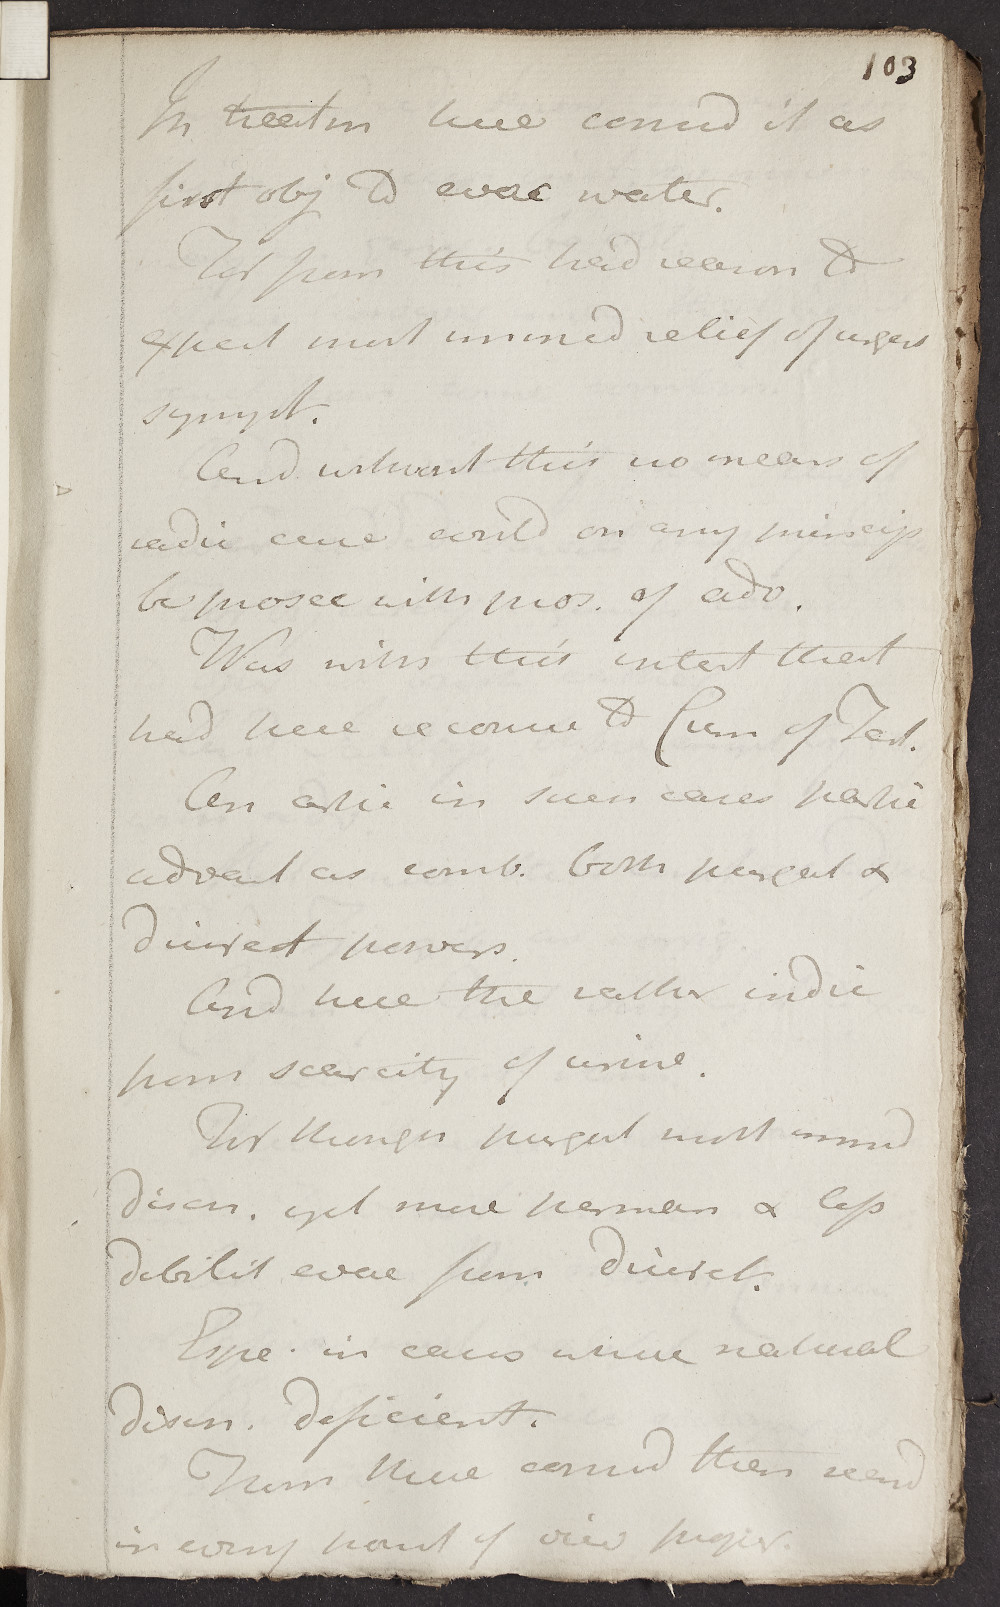 103
In treatm here consid it as
first obj to evac water.
For from this had reason to
expect most immed relief of urgent
sympt.
And without this no means of
radic cure could on any princip
be prosec with pros. of adv.
Was with this intent that
had here recourse to Crem of Tart.
An artic in such cases partic
advant as comb. both purgat &
diuret powers.
And here the rather indic
from scarcity of urine.
For though purgat most immed
disch. yet more perman & less
debilit evac from diuret.
Espe. in cases where natural
disch. deficient.
From these consid then
in every point of view proper.